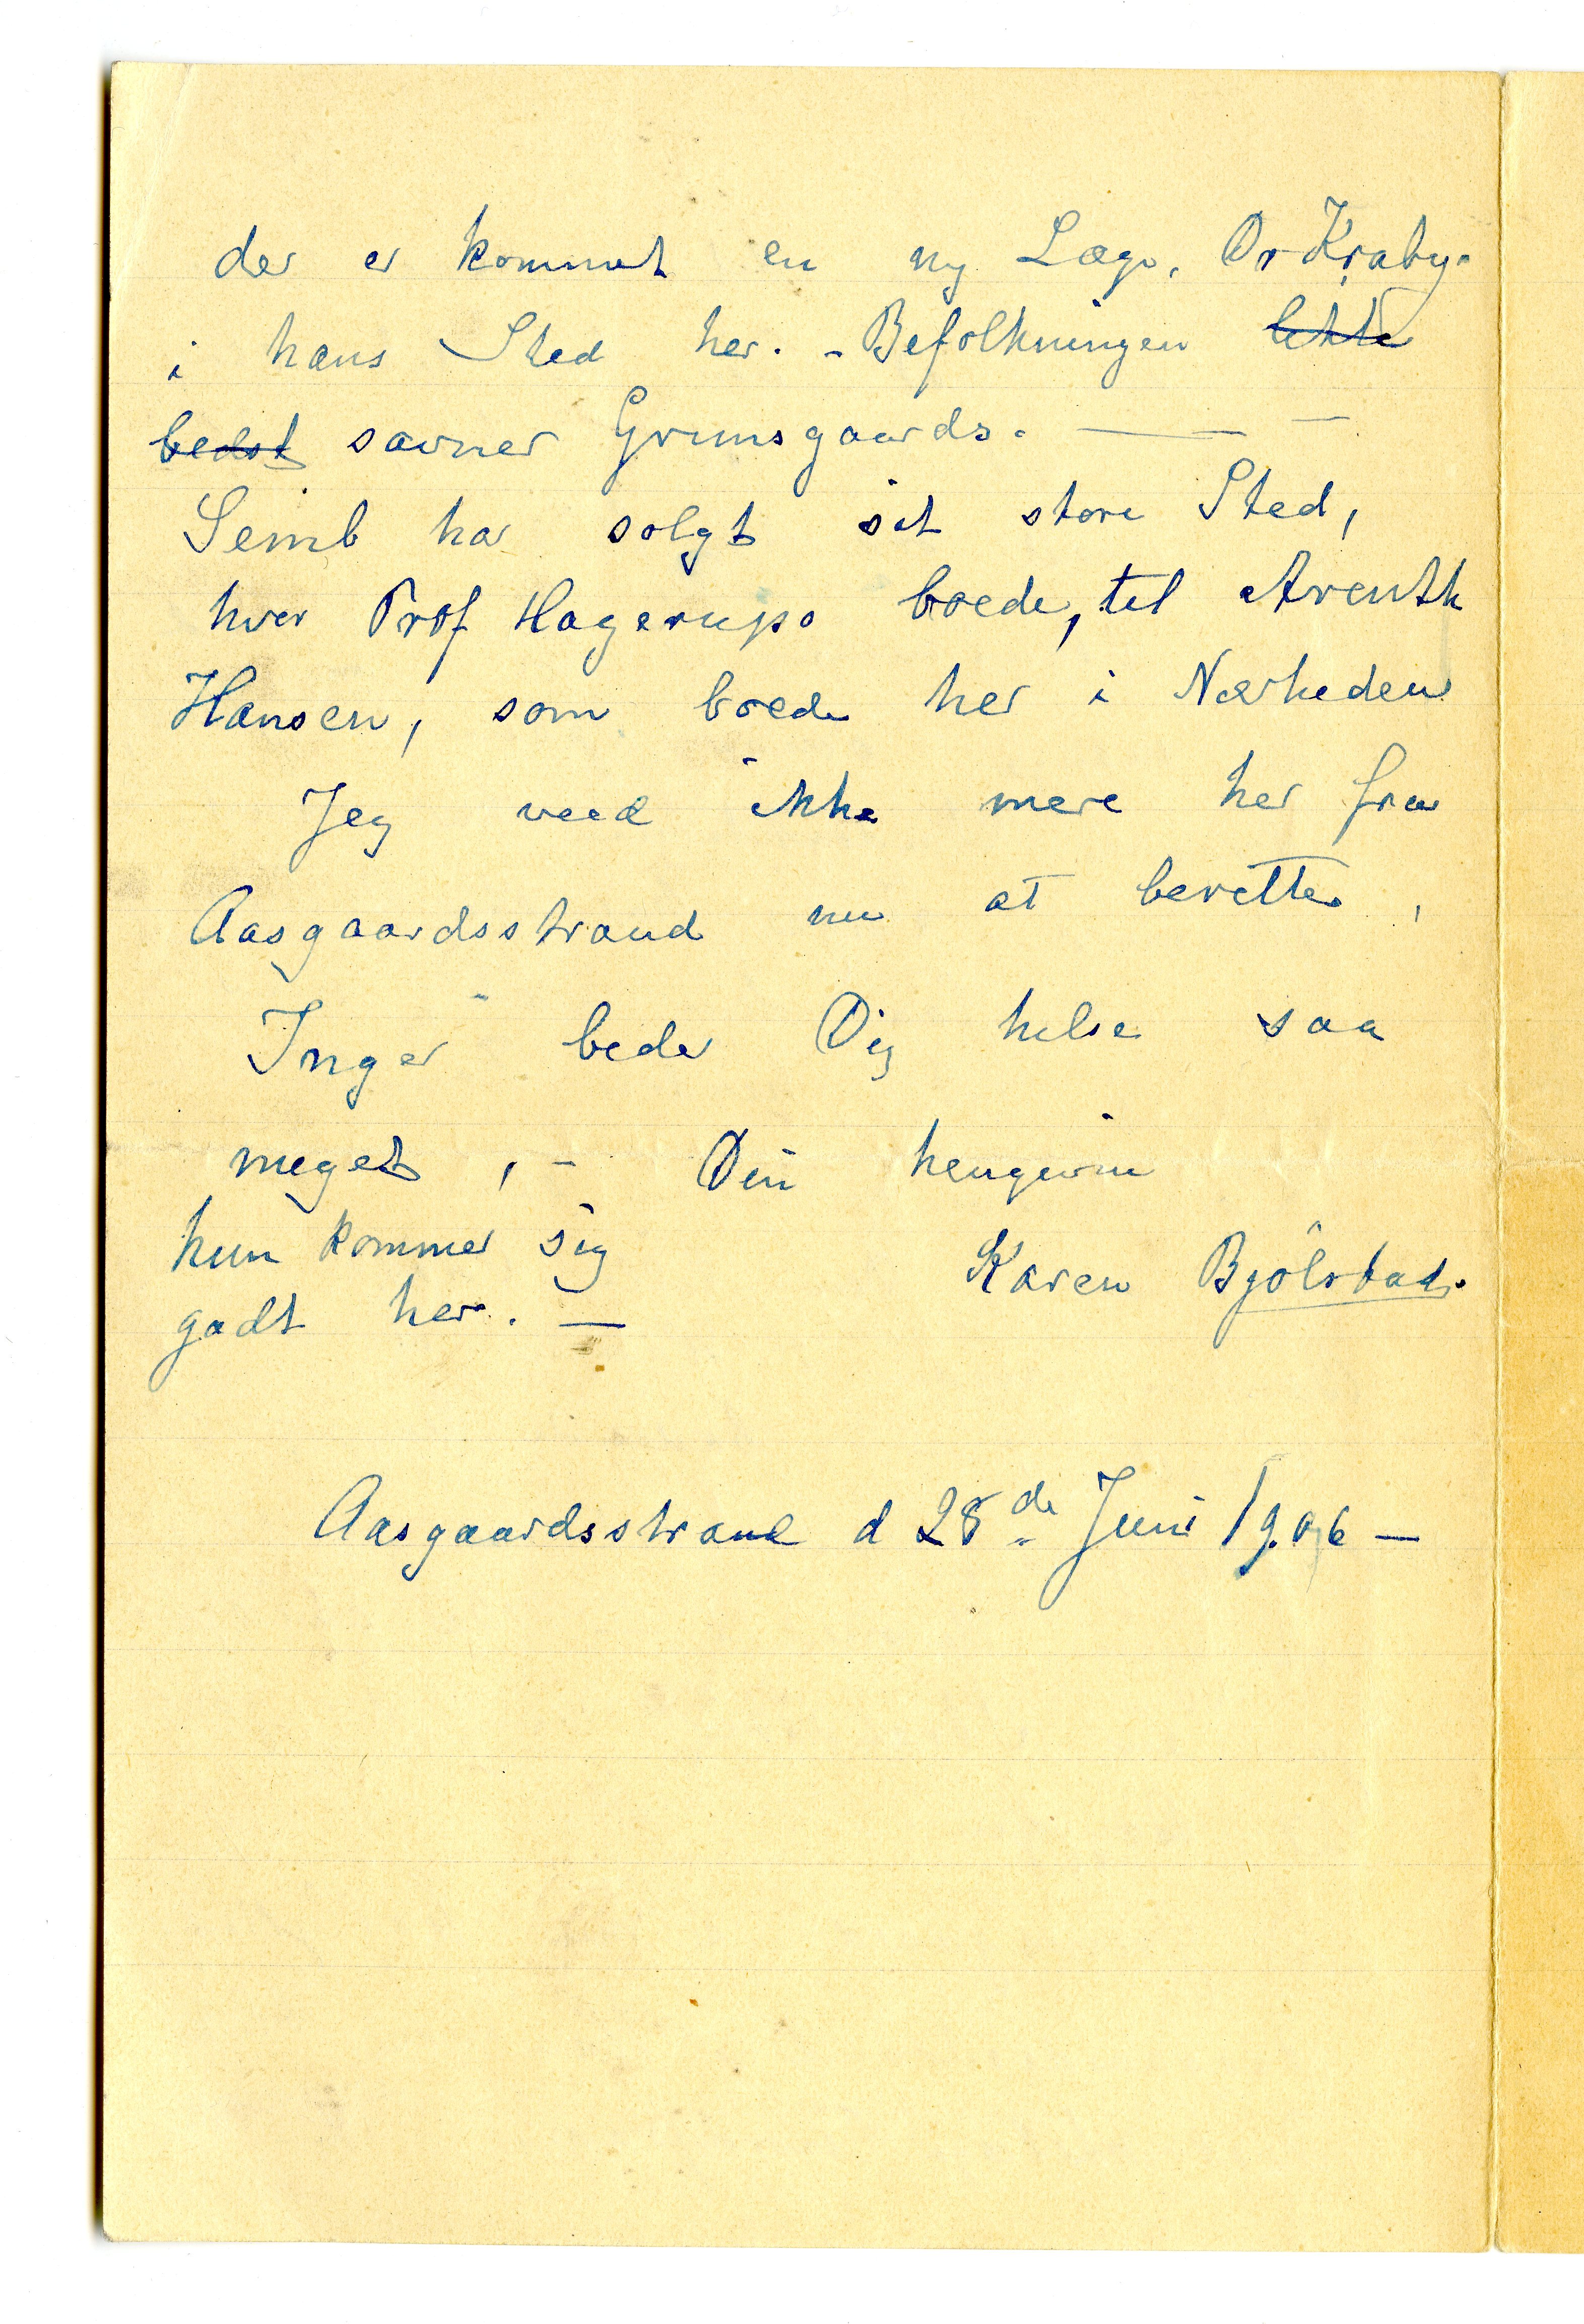 der er kommet en ny Læge, Dr Kraby.
i hans Sted her. - Befolkningen
bedst savner Grimsgaards. — —
Semb har solgt sit store Sted,
hvor Prof Hagerups boede, til Arenth
Hansen, som boede her i Nærheden
Jeg veed ikke mere her fra
Aasgaardsstrand nu at berette,
Inger beder Dig hilse saa
meget, - Din hengivne
hun kommer sig
godt her. —
Karen Bjölstad.
Aasgaardsstrand d 28de Juni 1906 —